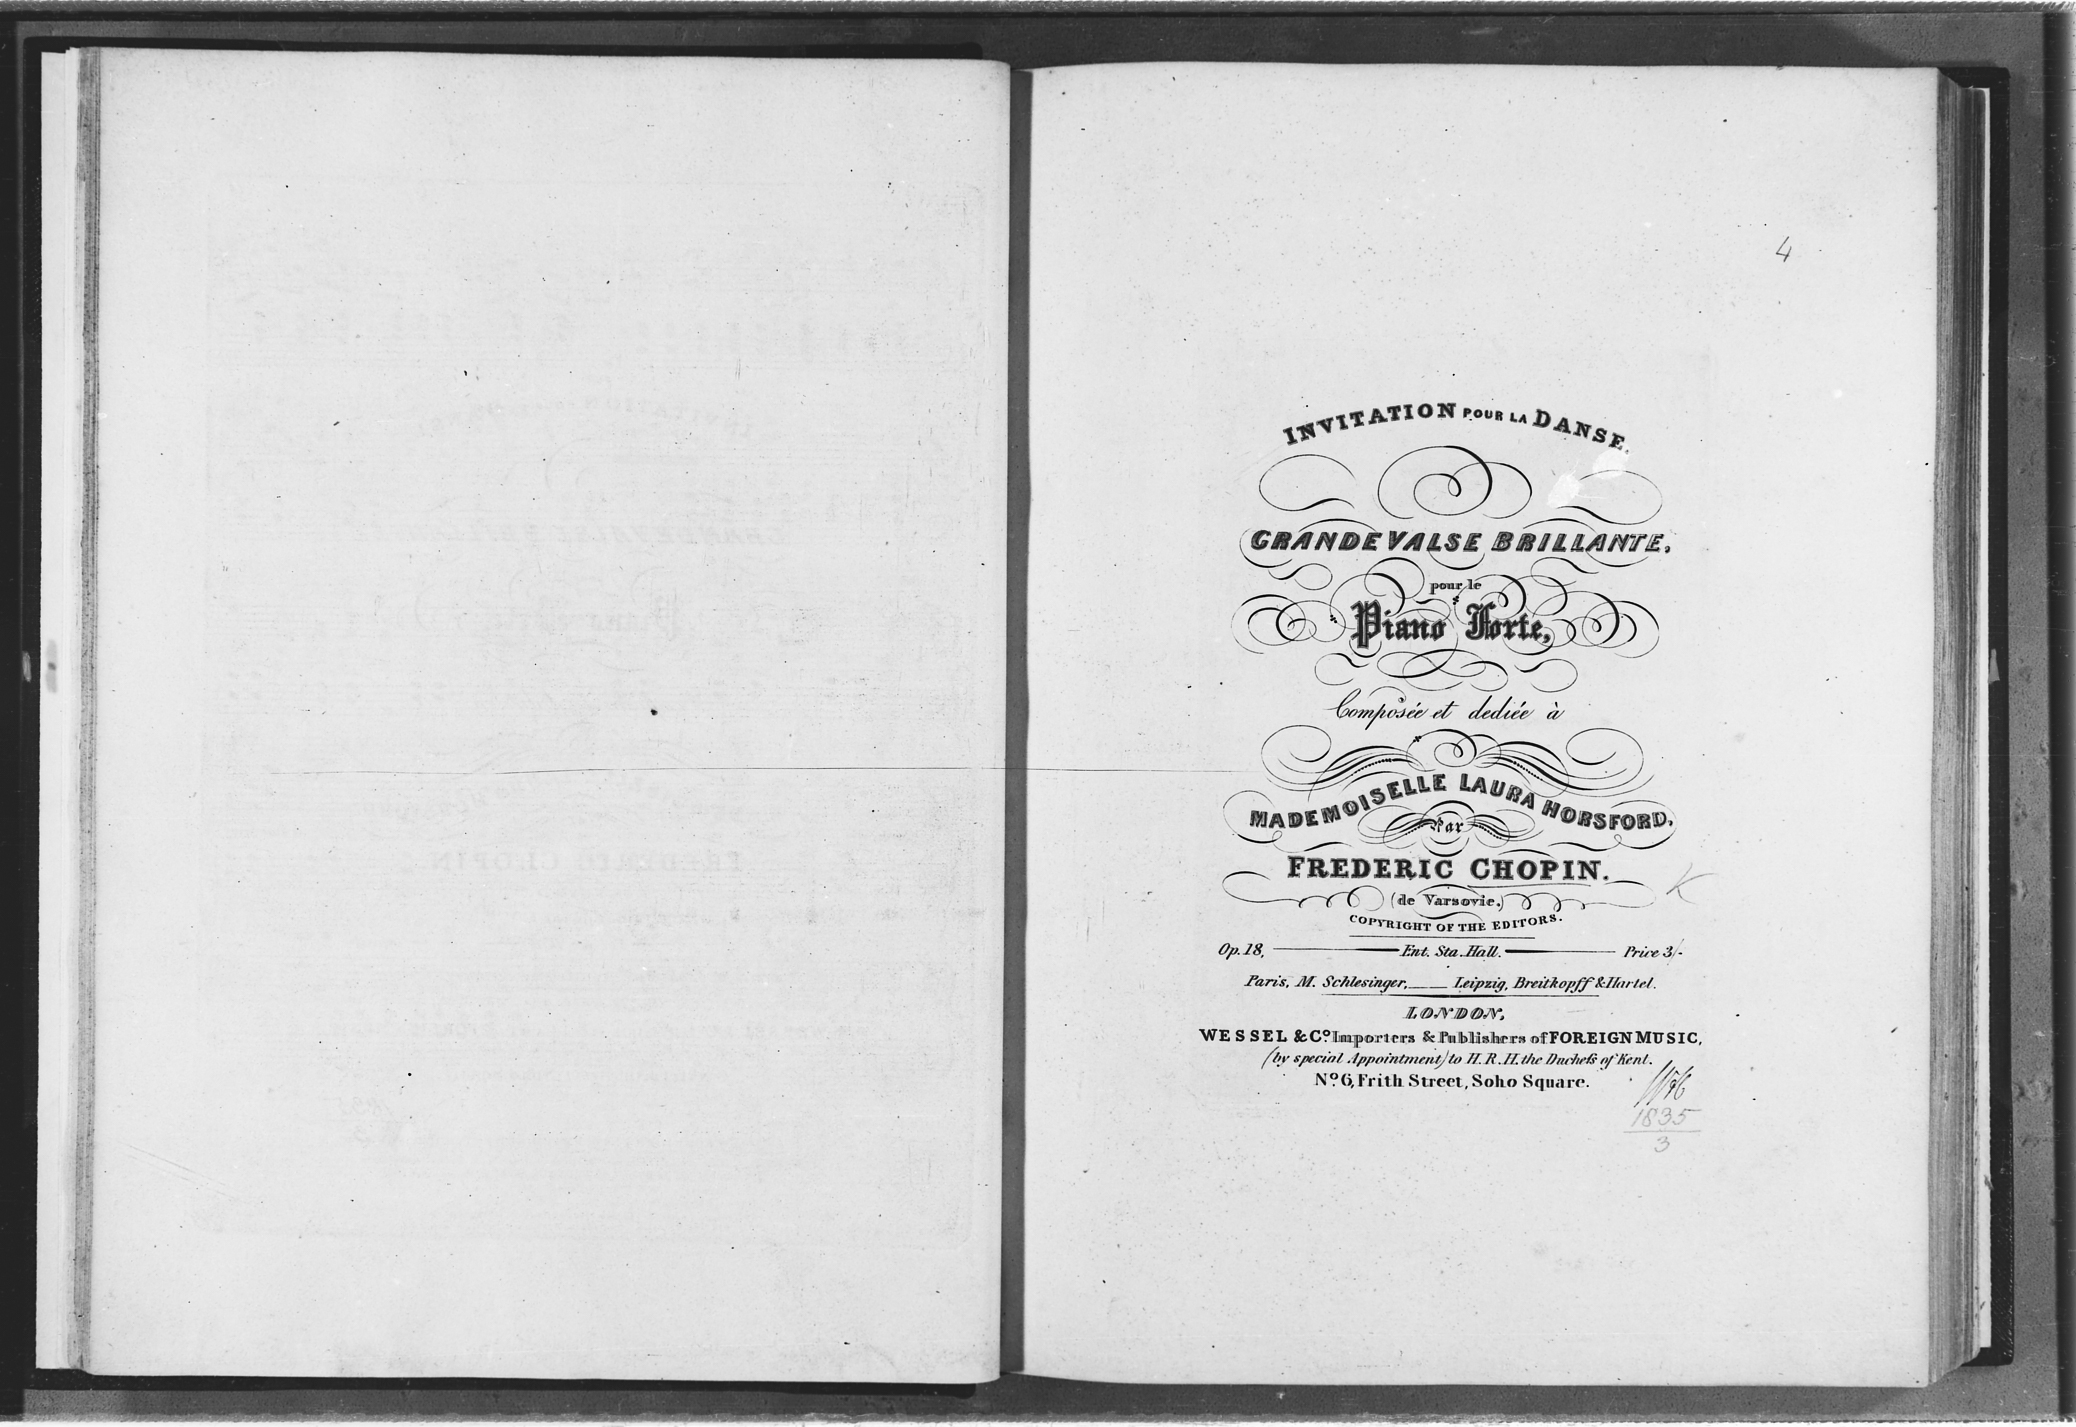 4
INVITATION POUR LA DANSE.
GRANDE VALSE BRILLANTE,
pour le
Piano Forte,
Composée et dediée à
MADEMOISELLE LAURA HORSFORD,
Par
FREDERIC CHOPIN.
K
(de Varsovie.)
COPYRIGHT OF THE EDITORS.
Op. 18, Ent. Sta. Hall. Price 3/-
Paris, M. Schlesinger, Leipzig, Breitkopff & Hartel.
LONDON,
WESSEL & Co. Importers & Publishers of FOREIGN MUSIC,
(by special Appointment) to H. R. H. the Duchess of Kent.
No. 6, Frith Street, Soho Square.
1835
3